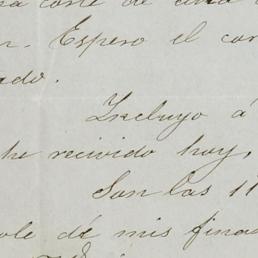 corte de
Espero el cor
ado.
Incluyo á
he recivido hoy,
Son las 11
ole de mis finad